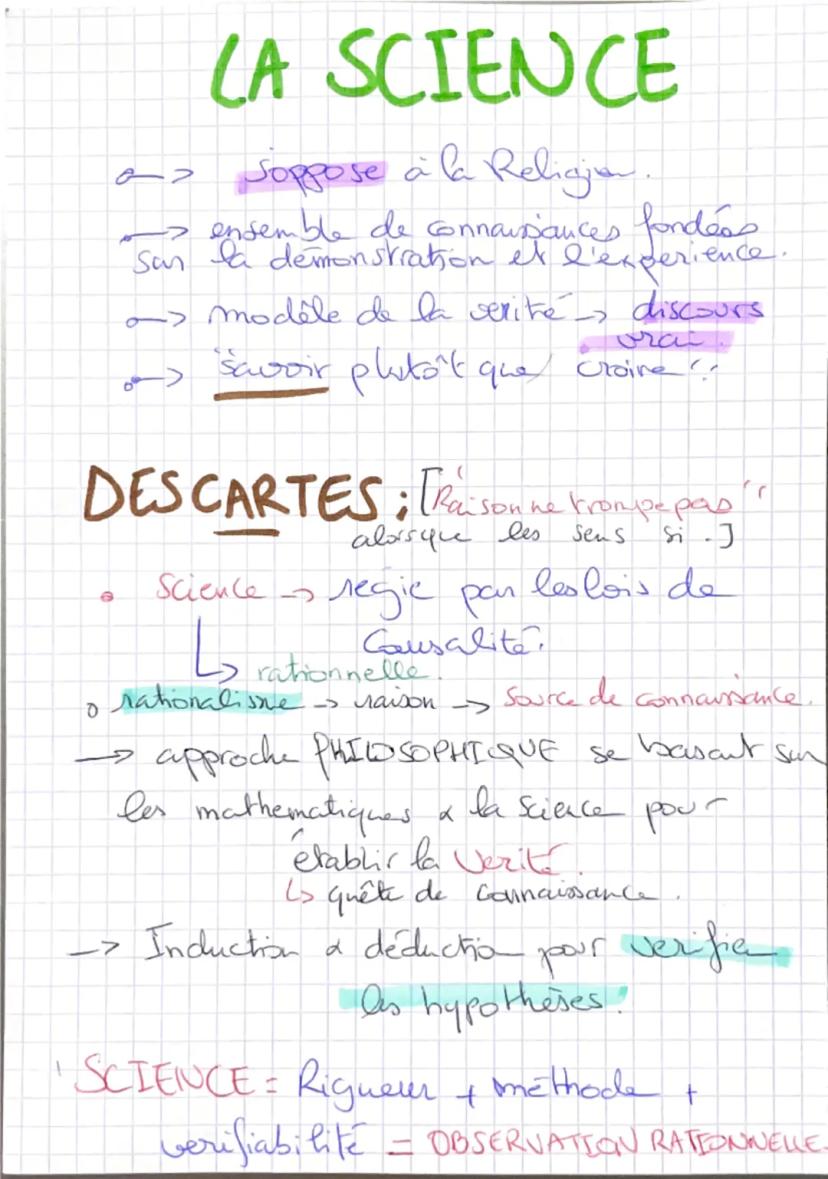 LA SCIENCE
→ s'oppose à la Religion.
→ ensemble de connaissances fondées
sur la démonstration et l'expérience.
→ modèle de la vérité → discours
vrai.
→ "savoir plutôt que croire"
DESCARTES : ["Raison ne trompe pas"
alors que les sens si .]
• Science → régie par les lois de
causalité.
↳ rationnelle.
o rationalisme → raison → Source de connaissance.
→ approche PHILOSOPHIQUE se basant sur
les mathématiques & la science pour
établir la Vérité.
↳ quête de connaissance.
→ Induction & déduction pour vérifier
les hypothèses.
SCIENCE = Rigueur + méthode +
verifiabilité = OBSERVATION RATIONNELLE.